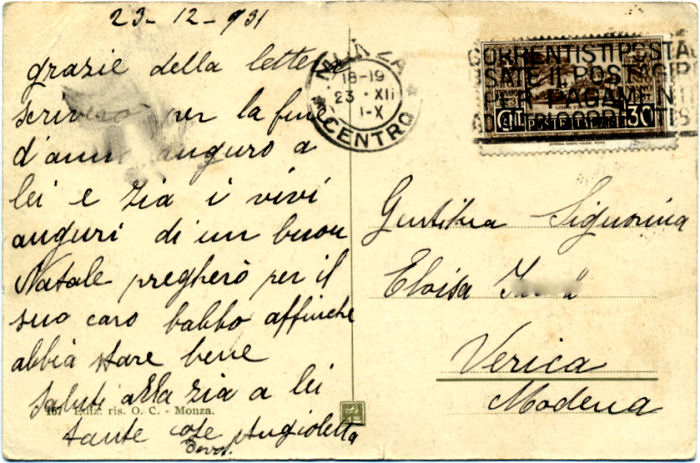 23-12-931
grazie della lettera
scriverò per la fine
d'anno auguro a
lei e zia i vivi
auguri di un buon
Natale pregherò per il
suo caro babbo affinche
abbia stare bene
saluti alla zia a lei
tante cose Angioletta
167 Ediz. ris. O. C. - Monza.
MONZA
18-19
23 XII
I-X
CENTRO
CORRENTISTI POSTA
USATE IL POSTAGIR
PER PAGAMENTI
30
Gentilma Signorina
Eloisa
Verica
Modena